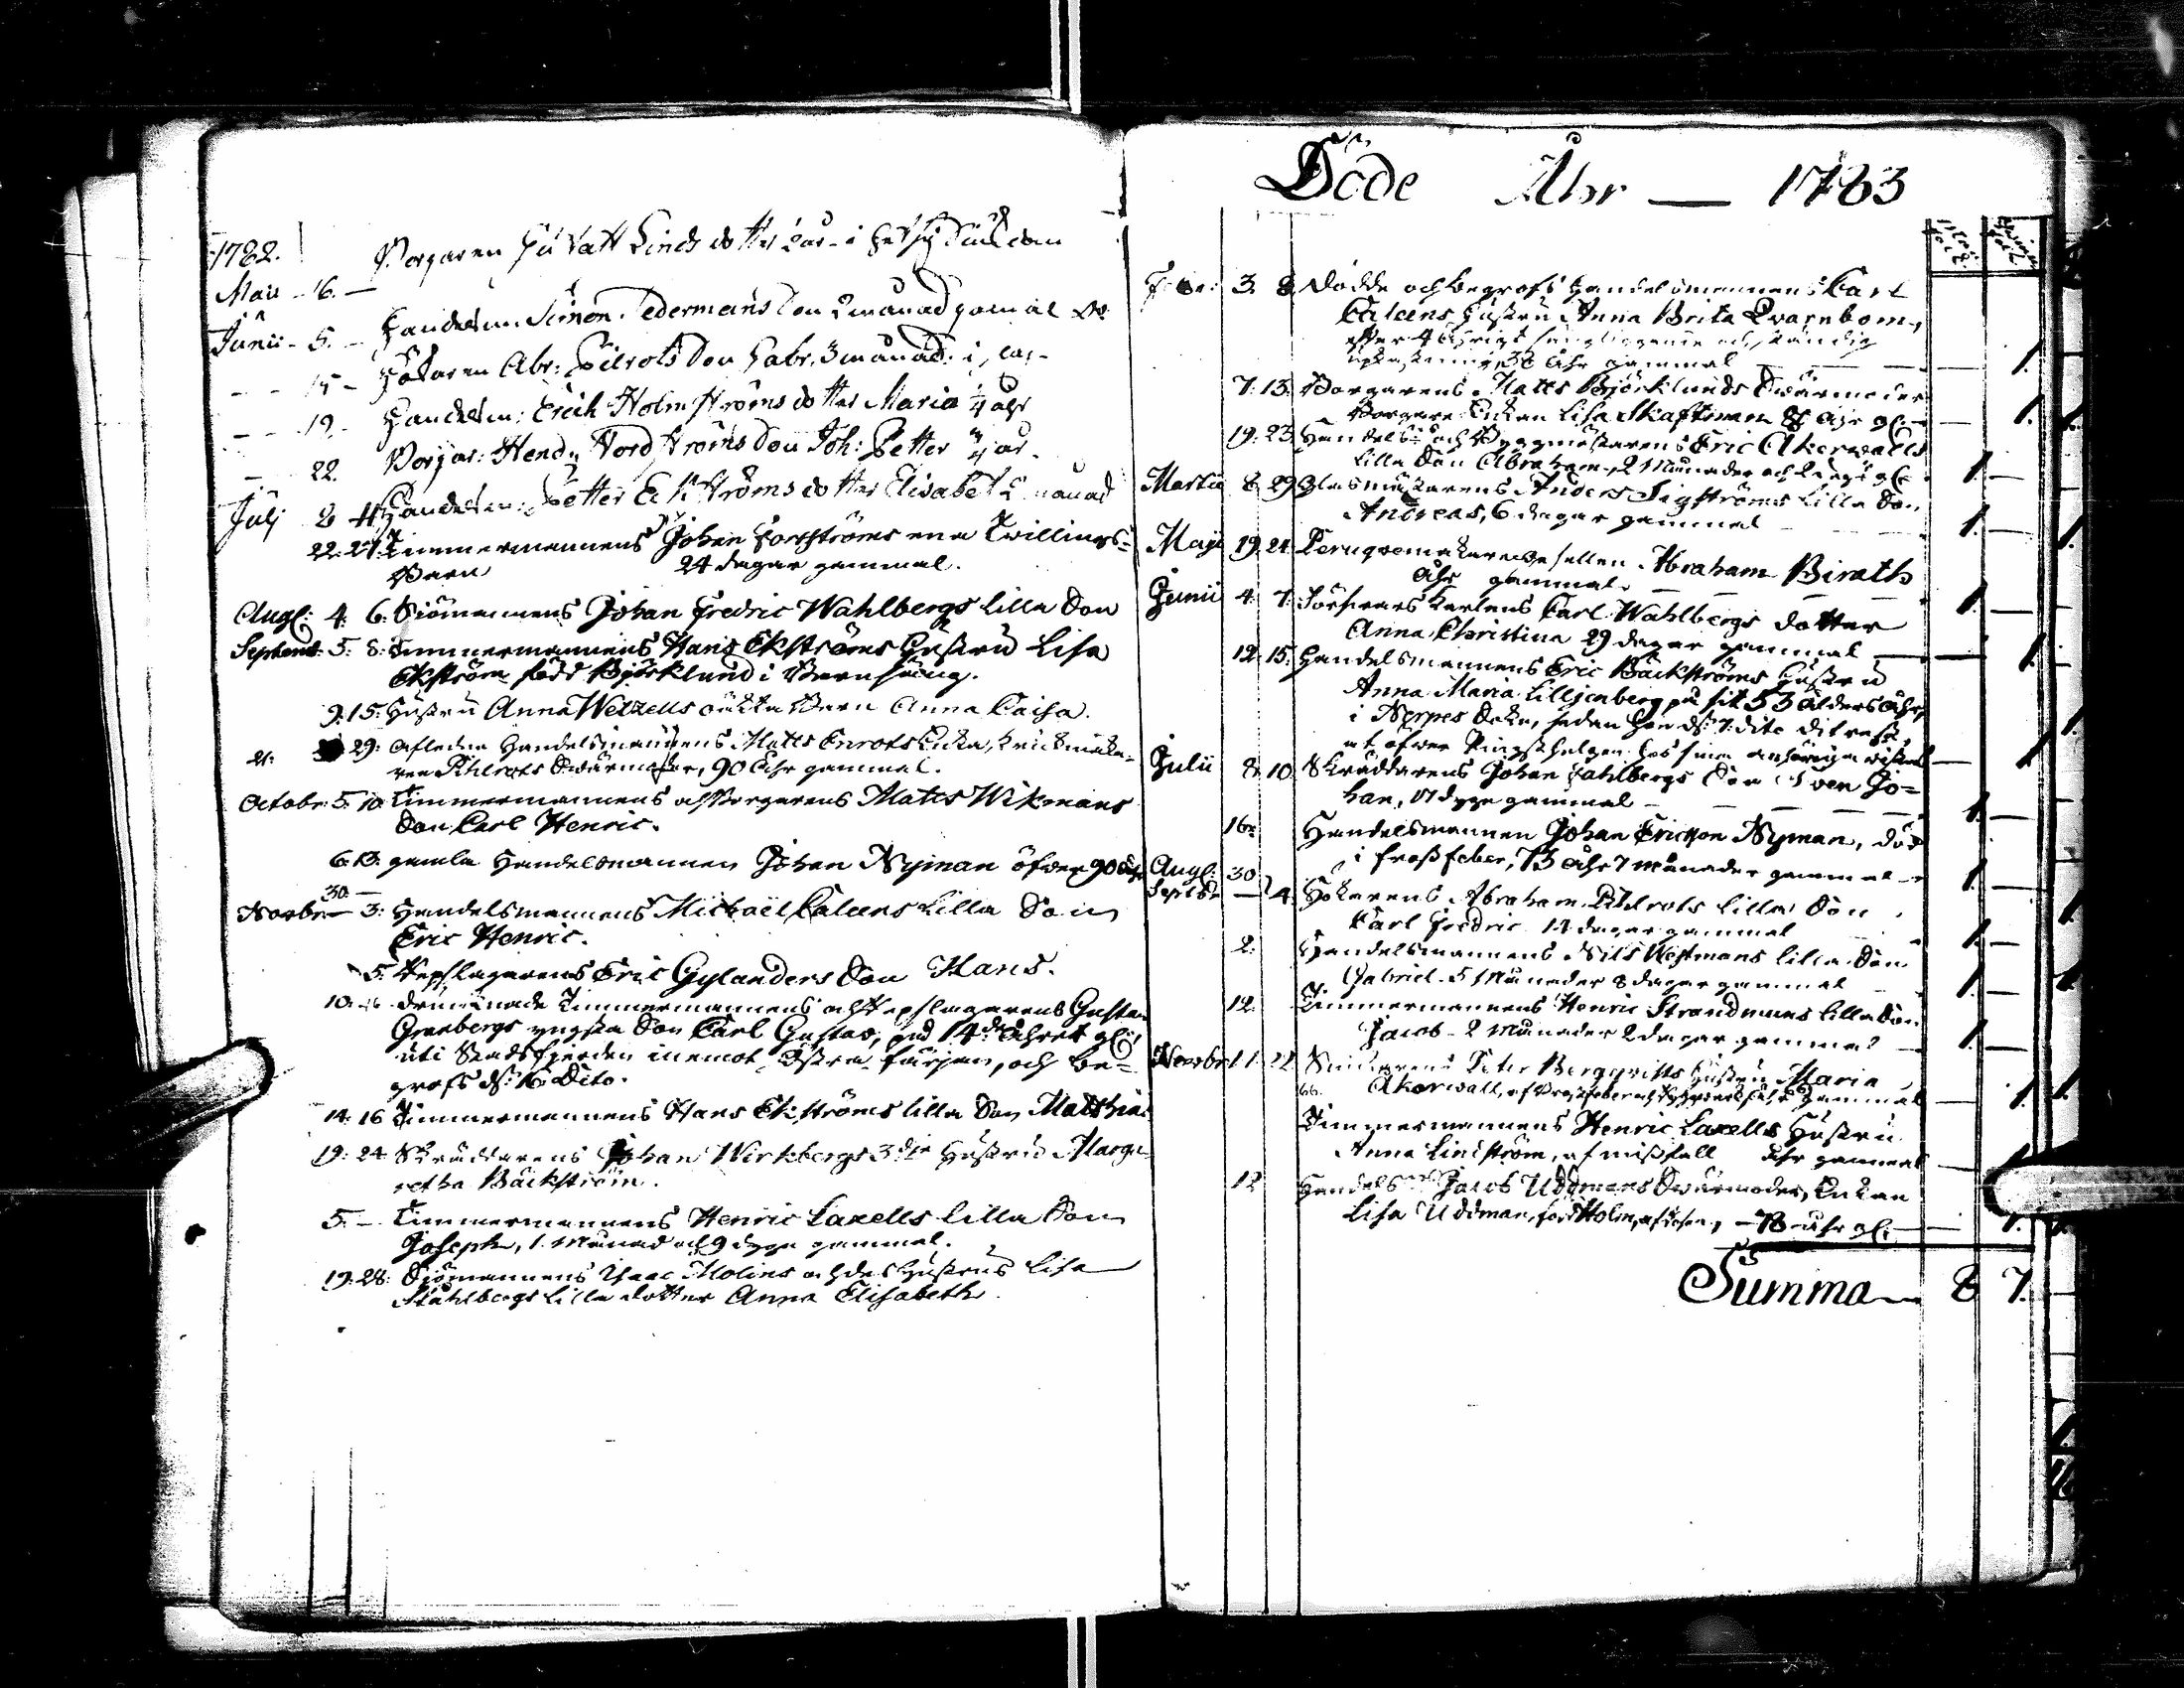 1782.
Maii 16. — Borgaren Gustaff Linds dotter
Junii 5. — Handelsm. Simon Cedermans Son 2 månad gammal
15 — Hökaren Abr: Pilrots Son Gabr. 3 månad:
19. Handelsm: Erich Holmströms dotter Maria ¼ åhr
22. Borgar: Hend. Nordströms Son Joh: Petter ¼ år.
Julj 8 11 Handelsm: Petter Ekströms dotter Elisabet 2 månad
22. 27. Timmermannens Johan Forsströms ena Tvillings=
Barn 24 dagar gammal.
Aug: 4. 6. Siömannens Johan Fredric Wahlbergs lilla Son
Septemb: 5. 8. Timmermannens Hans Ekströms Hustru Lisa
Ekström född Björklund i Barnsäng.
9. 15. Hustru Anna Wetzells oäkta Barn Anna Caisa.
21. 29. Afledne Handelsmannens Matts Enrots Enka, Krukmaka=
ren Pihlrots Svärmoder, 90 åhr gammal.
Octobr: 5. 10 Timmermannens och Borgarens Matts Wikmans
Son Carl Henric.
6. 13. gamla Handelsmannen Johan Nyman öfver 90 åhr
30.
Novbr — 3. Handelsmannens Michaël Caleens Lilla Son
Eric Henric.
5. Repslagarens Eric Gylanders Son Hans.
10. drunknade Timmermannens och Repslagarens Gustav
Granbergs yngsta Son Carl Gustav, på 14de åhret gl:
uti Stadsfjerden inemot Östra färjan, och be=
grofs d: 16 Dito.
14. 16 Timmermannens Hans Ekströms lilla Son Matthias
19. 24. Skräddarens Johan Wirkbergs 3die Hustru Marga=
retha Bäckström.
5. — Timmermannens Henric Laxells lilla Son
Joseph, 1 Månad och 9 dygn gammal.
19. 28. Siömannens Isaac Molins och des Hustrus Lisa
Ståhlbergs Lilla dotter Anna Elisabeth.
Döde Åhr — 1783
3. 8. Dödde och begrofs Handelsmannens Carl
Caleens Hustru Anna Brita Qvarnbom,
38 åhr gammal — 1.
7. 13. Borgarens Matts Björklunds Svärmoder
Borgare Enkan Lisa Skaftman åhr gl: — 1.
19. 23. Handels- och Byggmästarens Eric Åkerwalls
lilla Son Abraham, 2 Månader och gl: 1. —
Martii 8 29 Glasmästarens Anders Sigströms Lilla Son
Andreas, 6 dagar gammal 1.
Maji 19. 24. Peruqvemakaregesellen Abraham Birath
åhr gammal. — 1.
Junii 4. 7. Försvars Karlens Carl Wahlbergs dotter
Anna Christina 29 dagar gammal —
12. 15. Handelsmannens Eric Bäckströms Hustru
Anna Maria Lilljenberg på sit 53 ålders åhr,
i Nerpes Sokn, sedan hon d: 7. dito dit rest,
at öfver Pingsthelgen hos sina anhöriga vistas 1
Julii 8. 10. Skräddarens Johan Fahlbergs Son Sven Jo=
han, 17 dygn gammal — 1.
16. Handelsmannen Johan Ericsson Nyman, död
i frossfeber, 73 åhr 7 månader gammal 1.
Aug: 30
Septbr — 4. Hökarens Abraham Pihlrots lilla Son
Carl Fredric 14 dagar gammal 1. —
2. Handelsmannens Nils Westmans lilla Son
Gabriel. 5 Månader 8 dagar gammal 1.
12. Timmermannens Henric Strandmans lilla Son
Jacob. 2 Månader 2 dagar gammal 1 —
Novbr 11. 22. Peter Bergqvists Hustru Maria
Åkerwall, gammal — 1.
Timmermannens Henric Laxells Hustru
Anna Lindström, af missfall åhr gammal —
12 Handels Jacob Uddmans Svärmoder, Enkan
Lisa Uddman, född Holm, — 78 åhr gl: — 1.
Summa — 8 7.